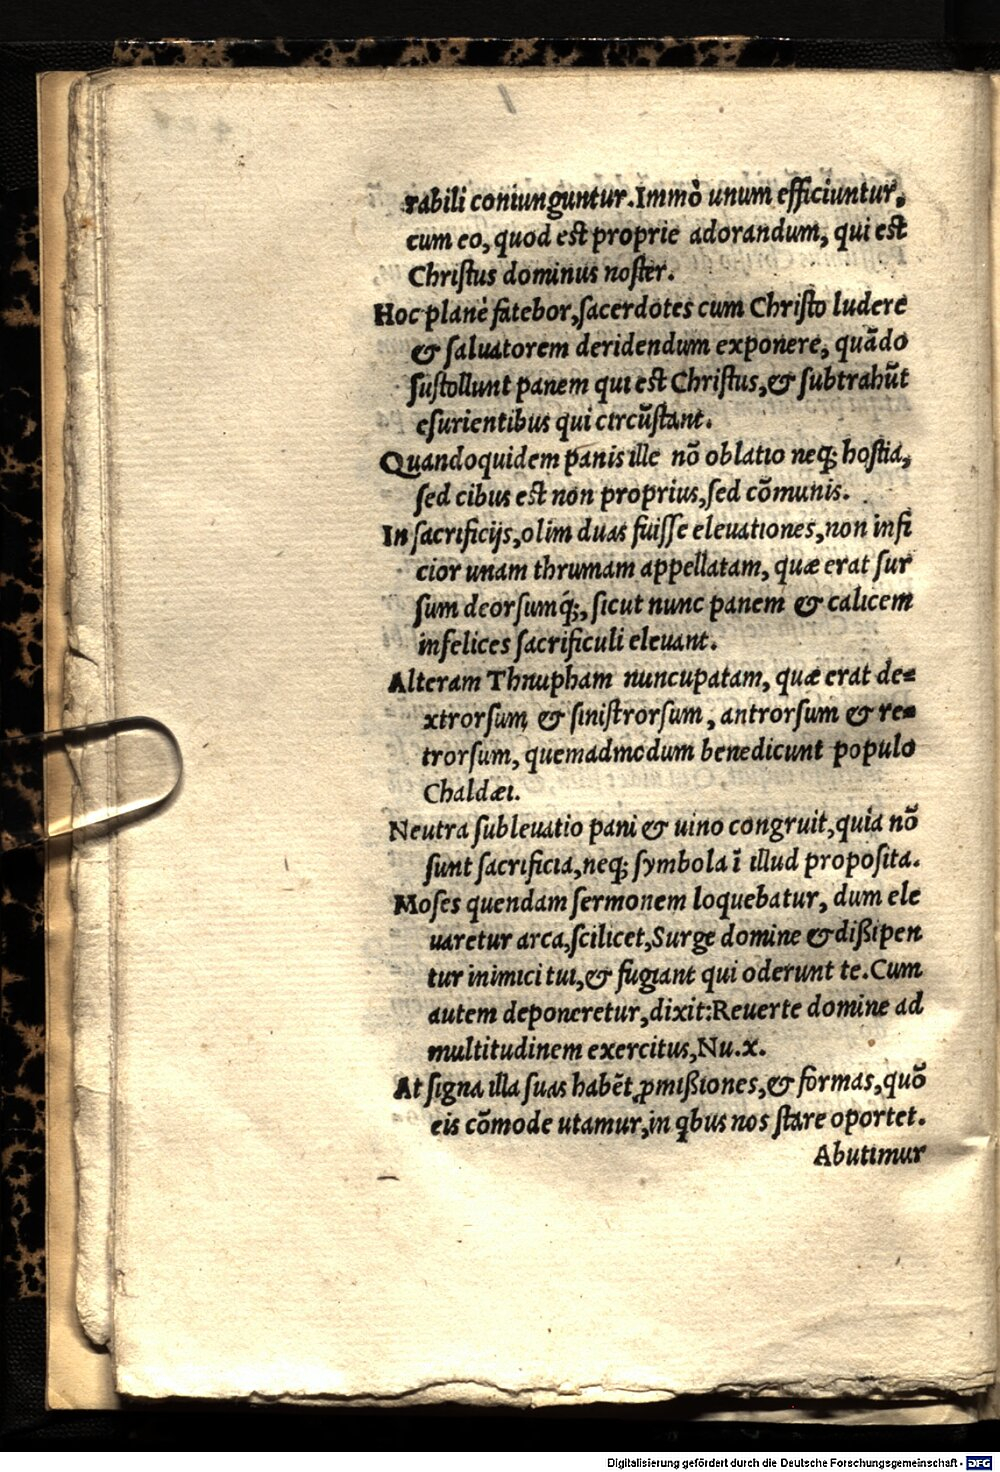 rabili coniunguntur. Immò unum efficiuntur,
cum eo, quod est proprie adorandum, qui est
Chriſtus dominus noſter.
Hoc planè fatebor, ſacerdotes cum Chriſto ludere
& ſaluatorem deridendum exponere, quãdo
ſuſtollunt panem qui est Chriſtus, & ſubtrahũt
eſurientibus qui circũſtant.
Quandoquidem panis ille nõ oblatio neq; hoſtia,
ſed cibus est non proprius, ſed cõmunis.
In ſacrificijs, olim duas fuiſſe eleuationes, non infi
cior unam thrumam appellatam, quæ erat ſur
ſum deorſumq́;, ſicut nunc panem & calicem
infelices ſacrificuli eleuant.
Alteram Thnupham nuncupatam, quæ erat de=
xtrorſum & ſiniſtrorſum, antrorſum & re=
trorſum, quemadmodum benedicunt populo
Chaldæi.
Neutra ſubleuatio pani & uino congruit, quia nõ
ſunt ſacrificia, neq; ſymbola ĩ illud propoſita.
Moſes quendam ſermonem loquebatur, dum ele
uaretur arca, ſcilicet, Surge domine & dißipen
tur inimici tui, & fugiant qui oderunt te. Cum
autem deponeretur, dixit: Reuerte domine ad
multitudinem exercitus, Nu. x.
At ſigna illa ſuas habẽt ꝓmißiones, & formas, quõ
eis cõmode utamur, in qbus nos ſtare oportet.
Abutimur
Digitalisierung gefördert durch die Deutsche Forschungsgemeinschaft - DFG